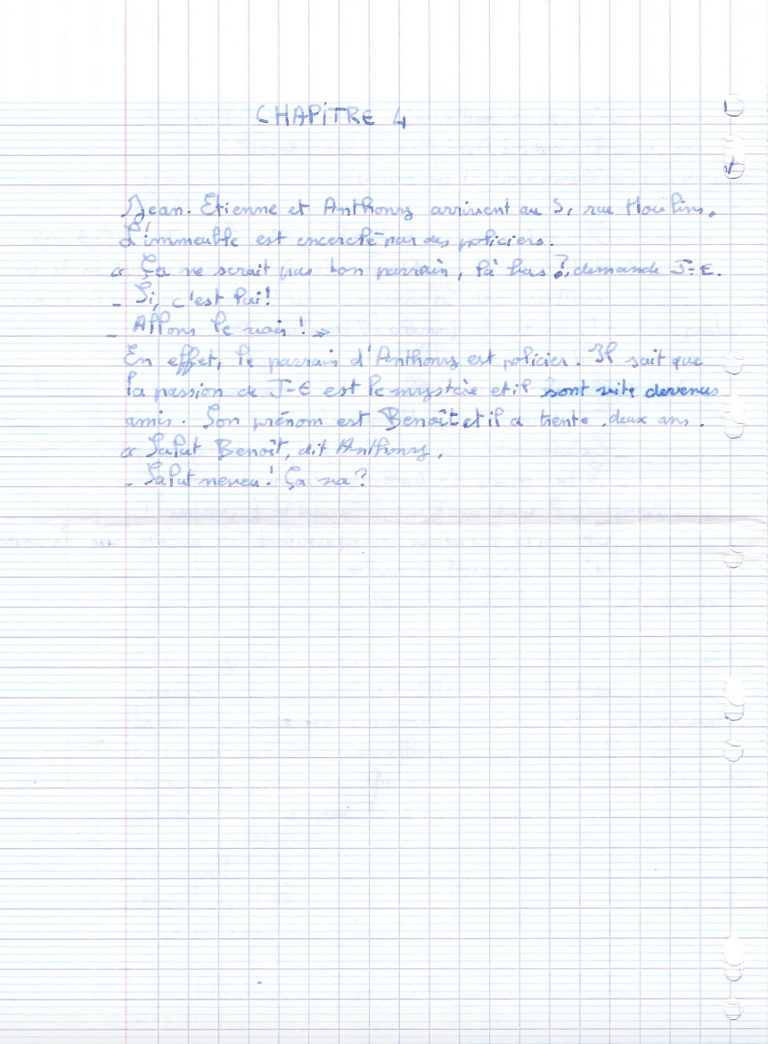 CHAPITRE 4
Jean-Etienne et Anthony arrivent au 5, rue Moulins.
L'immeuble est encerclé par des policiers.
« Ça ne serait pas ton parrain, là bas ?, demande J-E.
- Si, c'est lui!
- Allons le voir ! »
En effet, le parrain d'Anthony est policier. Il sait que
la passion de J-E est le mystère et il sont vite devenus
amis. Son prénom est Benoît et il a trente-deux ans.
« Salut Benoît, dit Anthony.
- Salut neveu! Ça va?